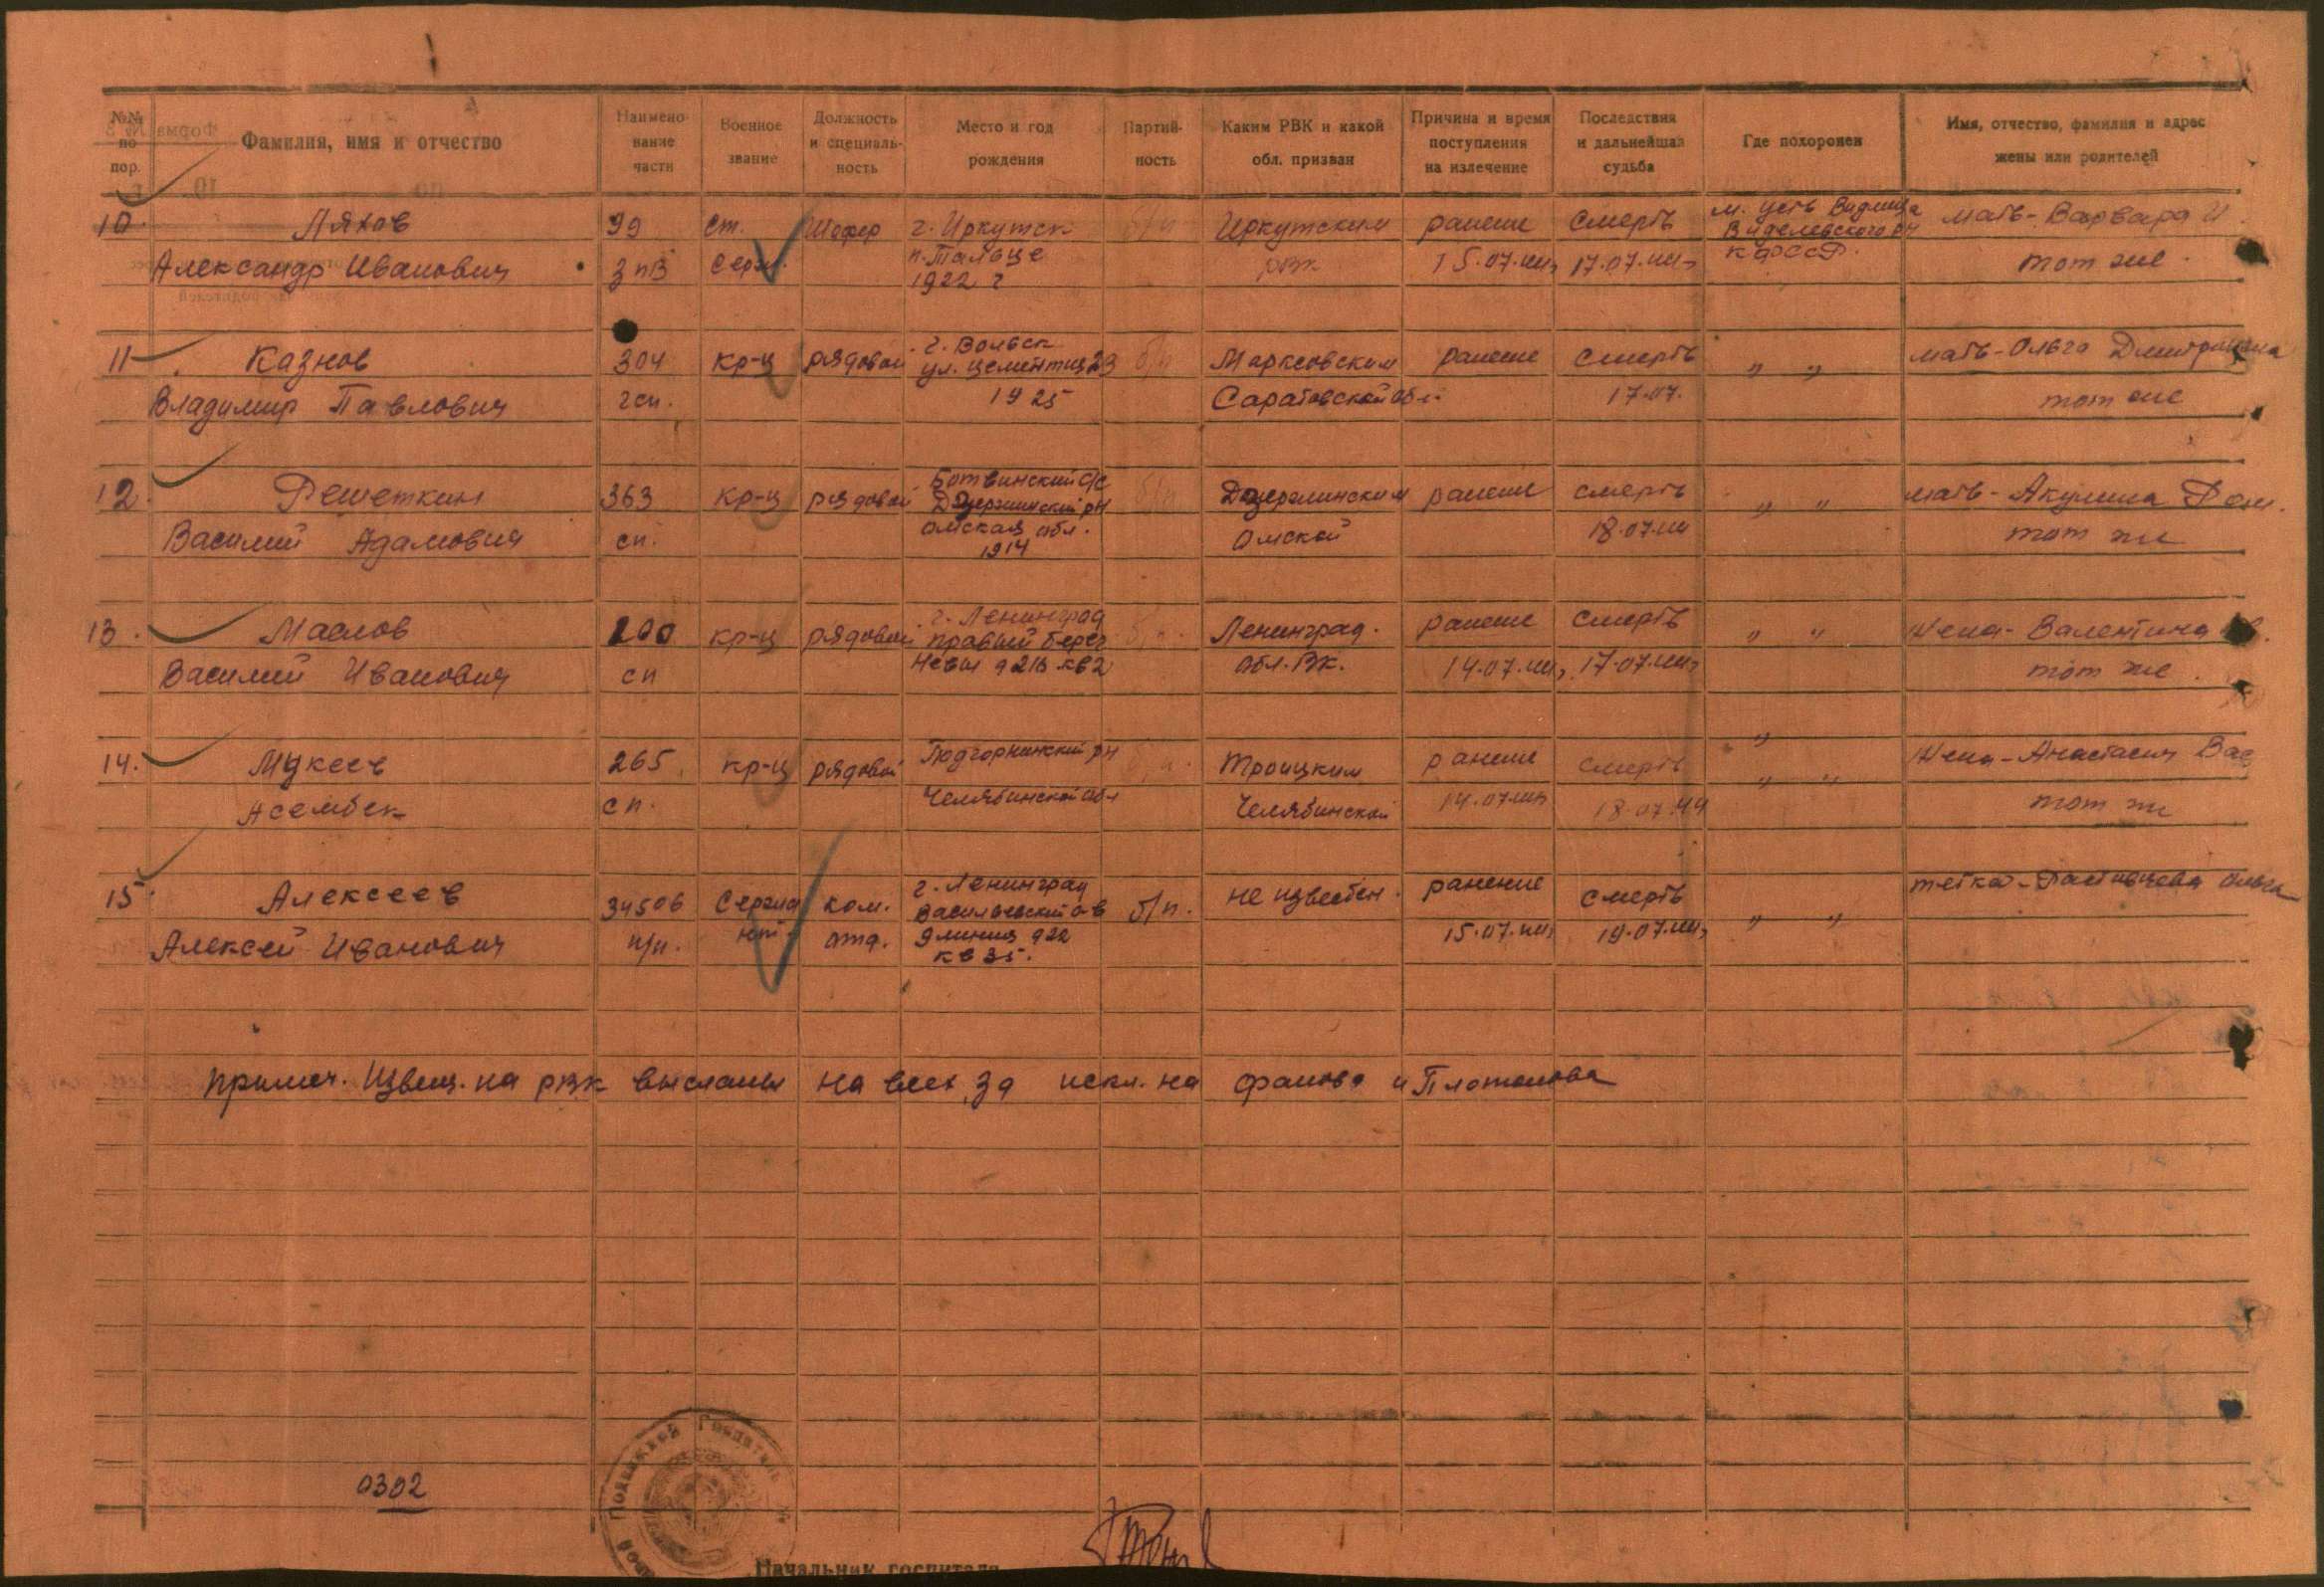 №№ по пор.
Фамилия, имя и отчество
Наименование части
Военное звание
Должность и специальность
Место и год рождения
Партийность
Каким РВК и какой обл. призван
Причина и время поступления на излечение
Последствия и дальнейшая судьба
Где похоронен
Имя, отчество, фамилия и адрес жены или родителей
10. Ляхов 99 ст. Шофер г. Иркутск б/п Иркутским ранение смерть м. Усть Видлица мать - Варвара И.
Александр Иванович ЗПВ серж. 1922 г РВК 15.07.44 17.07.44 КФССР. тот же.
11 Казнов 304 кр-ц рядовой г. Вольск б/п Марксовским ранение смерть " " мать - Ольга
ул. цементник 23
Владимир Павлович гсп. 1925 Саратовской обл. 17.07. тот же
12. Решеткин 363 кр-ц рядовой Ботвинский с/с б/п Дзержинским ранение смерть " " мать - Акулина
Дзержинский рн
Василий Адамович сп. Омская обл. Омской 18.07.44 тот же
1914
13. Маслов 200 кр-ц рядовой г. Ленинград Ленинград. ранение смерть " " Жена - Валентина
правый берег
Василий Иванович сп Невы д 21б кв 2 обл. ВК. 14.07.44 17.07.44 тот же.
14. Мукеев 265 кр-ц рядовой Подгорнинский рн Троицким ранение смерть " " Жена - Анастасия Вас
Асембек сп. Челябинской обл Челябинской 14.07.44 18.07.44 тот же
15. Алексеев 34506 Сержа ком. г. Ленинград б/п. не известен. ранение смерть " " тетка - Ольга
Васильевский о-в
Алексей Иванович п/п. нт. отд. 9 линия д 22 15.07.44 19.07.44
кв 35.
Примеч. Извещ. на РВК высланы на всех, за искл. на и Платонова
0302
Полевой Подвижной Госпиталь
Начальник госпиталя